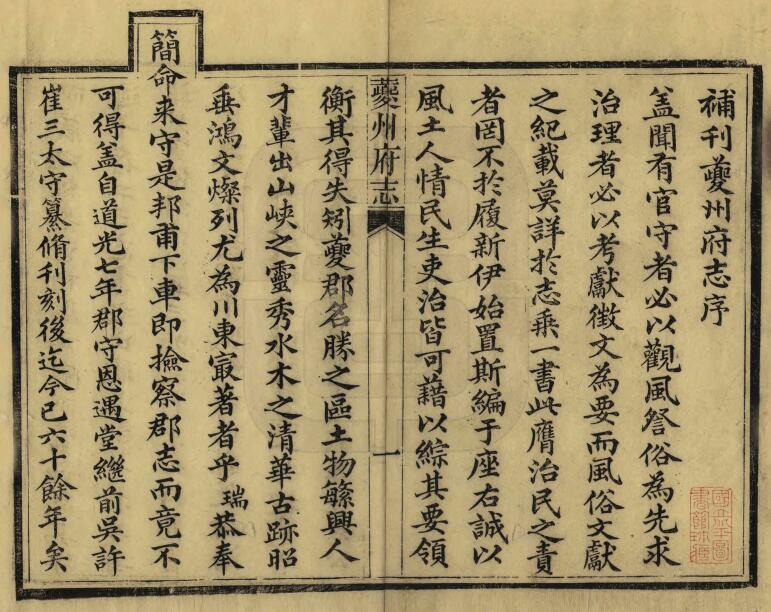 補刊夔州府志序
葢聞有官守者必以觀風詧俗為先求
治理者必以考獻徵文為要而風俗文獻
之紀載莫詳於志乘一書此膺治民之責
者罔不於履新伊始置斯編于座右誠以
風土人情民生吏治皆可藉以綜其要領
夔州府志
一
衡其得失矧夔郡名勝之區土物緐興人
才輩出山峽之靈秀水木之清華古跡昭
垂鴻文燦列尤為川東㝡著者乎瑞恭奉
簡命來守是邦甫下車即撿察郡志而竟不
可得葢自道光七年郡守恩遇堂繼前吳許
崔三太守纂脩刊刻後迄今已六十餘年矣